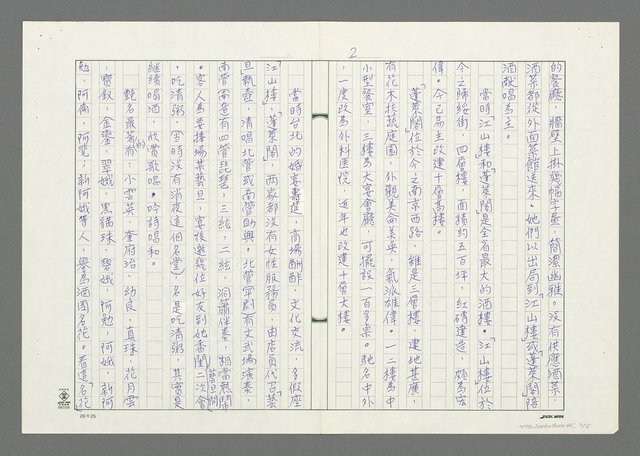 2
的餐廳，牆壁上掛幾幅字畫，簡潔幽雅。沒有供應酒菜，
酒菜都從外面菜館送來。她們以出局到「江山樓」或「蓬萊閣」陪
酒献唱為主。
當時「江山樓」和「蓬萊閣」是全省最大的酒樓。「江山樓」位於
今之歸綏街，四層樓，面積約五百坪，紅磚建造，頗為宏
偉。今已易主改建十層高樓。
「蓬萊閣」位於今之南京西路，雖是三層樓，建地甚廣，
有花木扶疏庭園，外觀美侖美奐，氣派雄偉，一二樓為中
小型餐室，三樓為大宴會廳，可擺設一百多桌。馳名中外
，一度改為外科医院，近年也改建十層大樓。
當時台北的婚宴壽筵，商場酬酢，文化交流，多假座
「江山樓」，「蓬萊閣」，兩家都没有女性服務員，由店員代召藝
旦執壺，清唱北管或南管助興。北管平劇有文武場演奏，
南管南簫有四管琵琶，三絃，二絃，洞簫伴奏，相當熱鬧
。客人為要捧場某藝旦，宴後邀幾位好友到她香閨（藝旦間）二次會
，吃清粥（當時沒有消夜這個名堂）名是吃清粥，其實是
繼續喝酒，欣賞歌唱。吟詩唱和。
艷名最著的有小雲英，奎府治，幼良，真珠，花月雲
，寶釵，金鑾，翠娥，黑貓珠，碧娥，阿勉，阿娥，新阿
勉，阿滿，阿梵，新阿娥等人，譽為酒國名花。看這「名花」
20×25